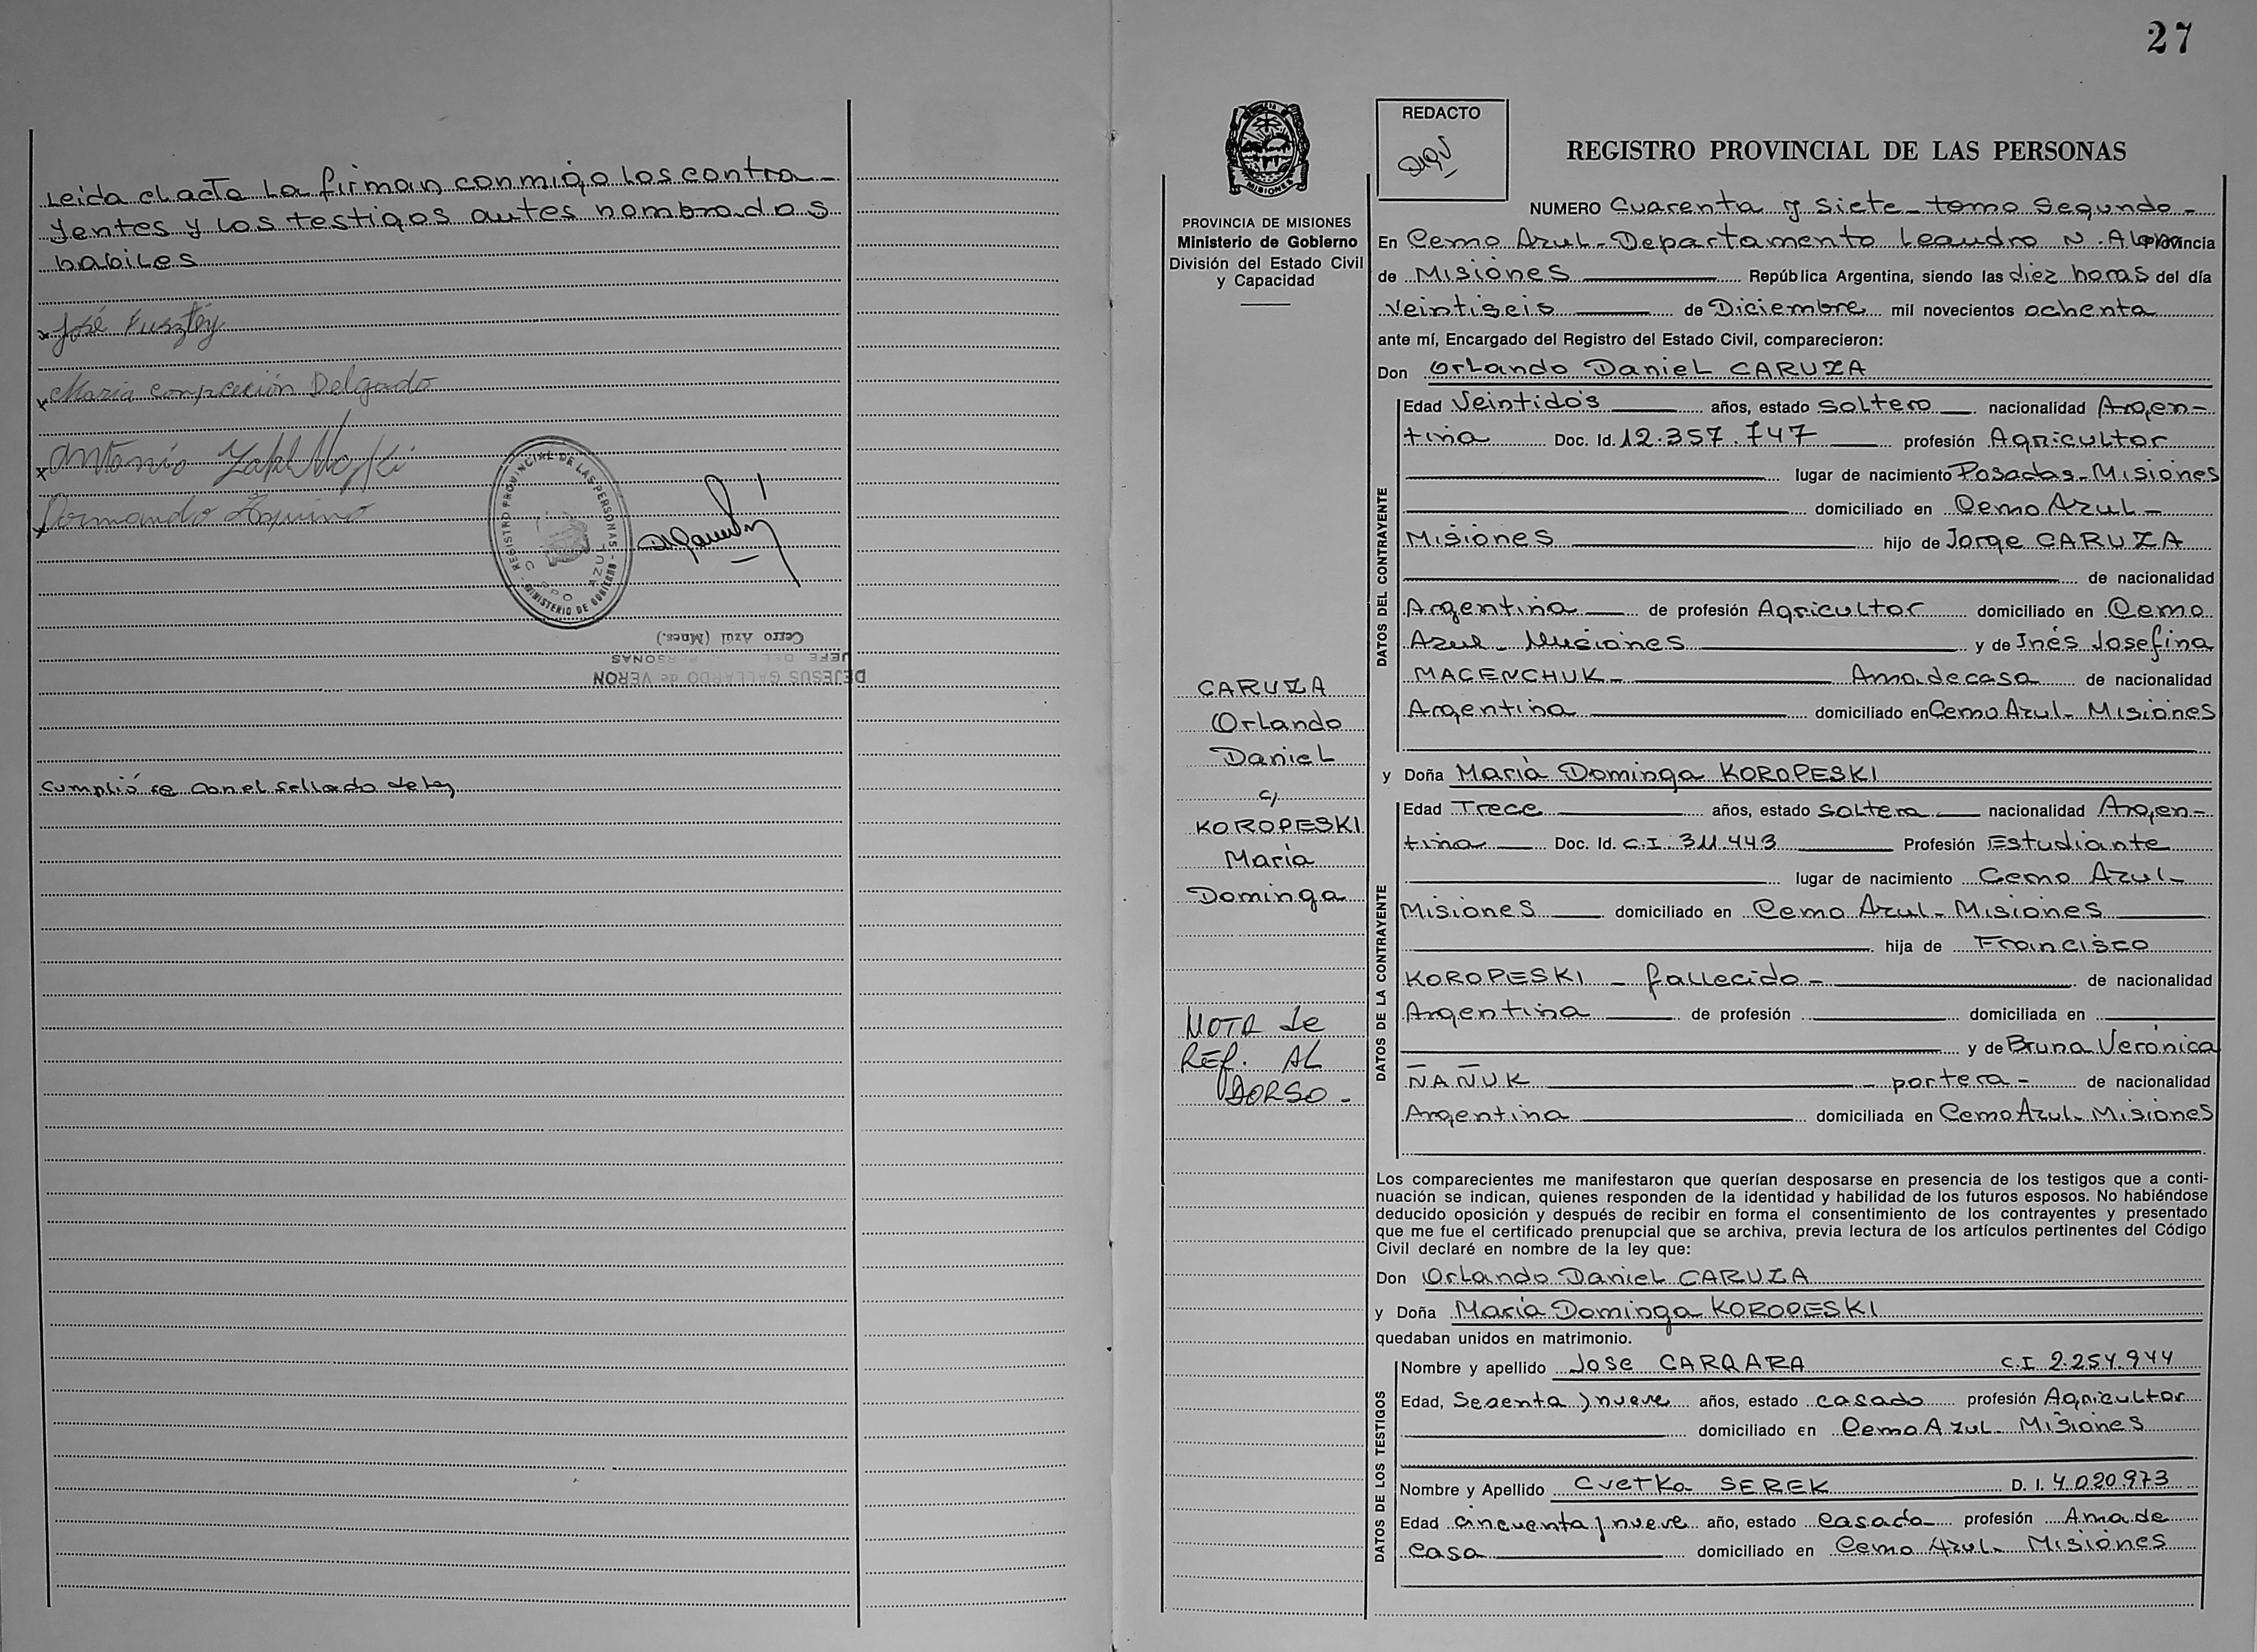 Leida el acta la firman conmigo los contra-
yentes y los testigos antes nombrados
habiles
José Pusztey
Maria Concepción Delgado
Antonio
Armando Aquino
REGISTRO PROVINCIAL DE LAS PERSONAS - MINISTERIO DE GOBIERNO -
AZUL
Cerro Azul (Mnes.)
JEFE DEL PERSONAS
DEJESUS GALLARDO de VERON
Cumplió se con el sellado de ley
27
PROVINCIA DE MISIONES
Ministerio de Gobierno
División del Estado Civil
y Capacidad
CARUZA
Orlando
Daniel
c/
KOROPESKI
María
Dominga
NOTA de
REF. AL
DORSO -
REDACTO
REGISTRO PROVINCIAL DE LAS PERSONAS
NUMERO Cuarenta y Siete - tomo Segundo -
En Cerro Azul - Departamento Leandro N. Alem Provincia
de Misiones República Argentina, siendo las diez horas del día
Veintiseis de Diciembre mil novecientos ochenta
ante mí, Encargado del Registro del Estado Civil, comparecieron:
Don Orlando Daniel CARUZA
DATOS DEL CONTRAYENTE
Edad Veintidos años, estado soltero nacionalidad Argen-
tina Doc. Id. 12.357.747 profesión Agricultor
lugar de nacimiento Posadas - Misiones
domiciliado en Cerro Azul -
Misiones hijo de Jorge CARUZA
de nacionalidad
Argentina de profesión Agricultor domiciliado en Cerro
Azul - Misiones y de Inés Josefina
MAGENCHUK - Ama de casa de nacionalidad
Argentina domiciliado en Cerro Azul - Misiones
y Doña María Dominga KOROPESKI
DATOS DE LA CONTRAYENTE
Edad Trece años, estado soltera nacionalidad Argen-
tina Doc. Id. C.I. 311.443 Profesión Estudiante
lugar de nacimiento Cerro Azul -
Misiones domiciliado en Cerro Azul - Misiones
hija de Francisco
KOROPESKI - fallecido - de nacionalidad
Argentina de profesión domiciliada en
y de Bruna Verónica
ÑAÑUK portera - de nacionalidad
Argentina domiciliada en Cerro Azul - Misiones
Los comparecientes me manifestaron que querían desposarse en presencia de los testigos que a conti-
nuación se indican, quienes responden de la identidad y habilidad de los futuros esposos. No habiéndose
deducido oposición y después de recibir en forma el consentimiento de los contrayentes y presentado
que me fue el certificado prenupcial que se archiva, previa lectura de los artículos pertinentes del Código
Civil declaré en nombre de la ley que:
Don Orlando Daniel CARUZA
y Doña María Dominga KOROPESKI
quedaban unidos en matrimonio.
DATOS DE LOS TESTIGOS
Nombre y apellido Jose CARRARA C.I 2.254.944
Edad, Sesenta y nueve años, estado casado profesión Agricultor
domiciliado en Cerro Azul - Misiones
Nombre y Apellido Cvetka SEREK D. I. 4.020.973
Edad cincuenta y nueve año, estado Casada profesión Ama de
Casa domiciliado en Cerro Azul - Misiones